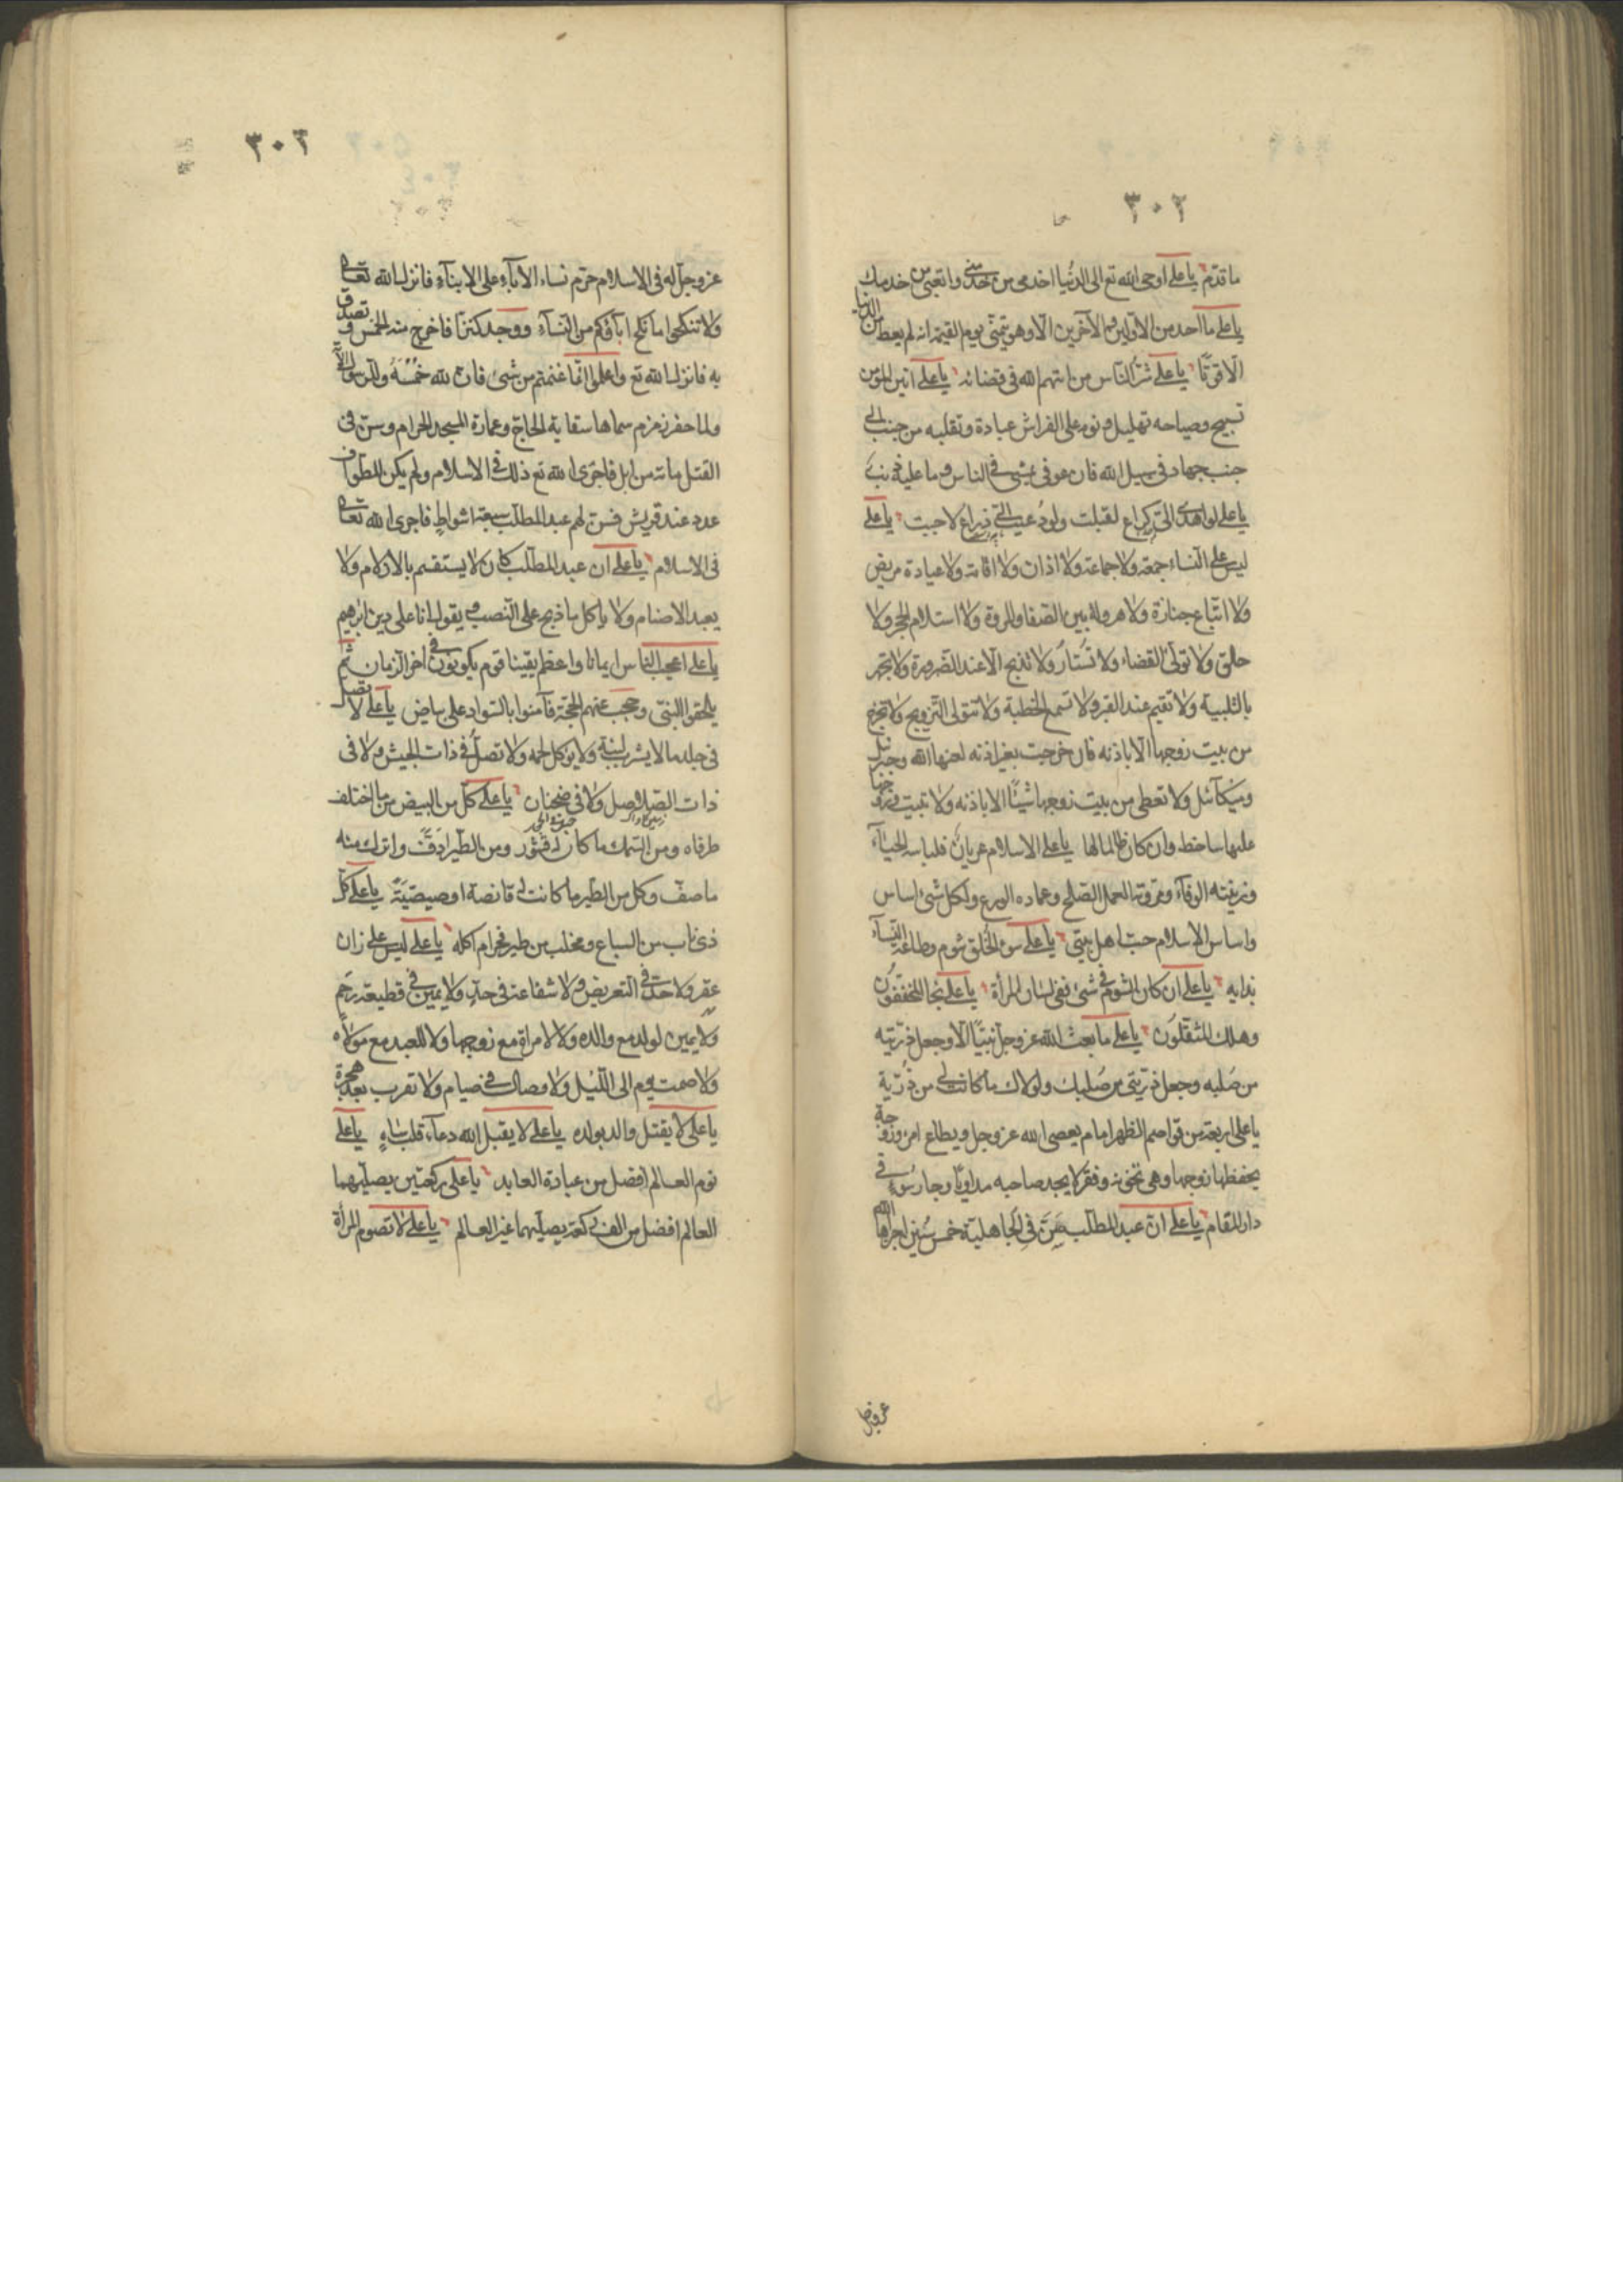 ٣٠٢
ما قدم يا علي اوحى الله تع الى الدنيا اخدمى من خدمنى واتعبى من خدمك
يا على ما احد من الاولين والآخرين الّا وهو يتمنّى يوم القيمة انه لم يعط من الدنيا
الا قوتًا يا علي شرّ الناس من اتهم الله فى قضائه يا علي انين المؤمن
تسبيح وصياحه تهليل ونومه على الفراش عبادة وتقلبه من جنب الى
جنب جهاد فى سبيل الله فان عوفى يمشى فى الناس وما عليه ذنب
يا على لو اهدى الىّ كراع لقبلت ولو دعيت الى ذراع لاجبت يا علي
ليس على النساء جمعة ولا جماعة ولا اذان ولا اقامة ولا عيادة مريض
ولا اتباع جنازة ولا هرولة بين الصفا والمروة ولا استلام الحجر ولا
حلق ولا تولى القضاء ولا تستار ولا تذبح الا عند الضرورة ولا تجهر
بالتلبية ولا تقيم عند القبر ولا تسمع الخطبة ولا تتولى التزويج ولا تخرج
من بيت زوجها الّا باذنه فان خرجت بغير اذنه لعنها الله وجبرئيل
وميكائيل ولا تعطى من بيت زوجها شيئًا الا باذنه ولا تبيت وزوجها
عليها ساخط وان كان ظالما لها يا على الاسلام عريان فلباسه الحياء
وزينته الوفاء ومروته العمل الصالح وعماده الورع ولكل شئ اساس
واساس الاسلام حبنا اهل بيتى يا علي سوء الخلق شوم وطاعة النساء
ندامه يا على ان كان الشوم فى شئ ففى لسان المرأة يا على نجا المخففون
وهلك المثقلون يا علي ما بعث الله عز وجل نبيًا الّا وجعل ذريته
من صلبه وجعل ذريتى من صلبك ولولاك ما كانت لى من ذرية
يا على اربعة من قواصم الظهر امام يعصى الله عز وجل ويطاع امره وزوجة
يحفظها زوجها وهى تخونه وفقر لا يجد صاحبه مداويًا وجار سوء فى
دار المقام يا علي ان عبد المطلب سن فى الجاهلية خمس سنن اجراها الله
عزوجل
٣٠٣
عز وجل له فى الاسلام حرّم نساء الاباء على الابناء فانزل الله تعالى
ولا تنكحوا ما نكح اباؤكم من النساء ووجد كنزًا فاخرج منه الخمس وتصدق
به فانزل الله تع واعلموا انّما غنمتم من شئ فان لله خمسه وللرسول الآية
ولما حفر زمزم سماها سقاية الحاج وعمارة المسجد الحرام وسن فى
القتل مائة من ابل فاجرى الله تع ذلك فى الاسلام ولم يكن للطواف
عدد عند قريش فسن لهم عبد المطلب سبعة اشواط فاجرى الله تعالى
فى الاسلام يا علي ان عبد المطلب كان لا يستقسم بالازلام ولا
يعبد الاصنام ولا ياكل ما ذبح على النصب ويقول انا على دين ابراهيم
يا علي اعجب الناس ايمانا واعظم يقينا قوم يكونون فى اخر الزمان لم
يلحقوا النبى وحجب عنهم الحجة فآمنوا بالسواد على بياض يا علي لا تصل
فى جلد ما لا يشرب لبنه ولا يؤكل لحمه ولا تصل فى ذات الجيش ولا فى
ذات الصلاصل ولا فى ضجنان يا علي كل من البيض ما اختلف
طرفاه ومن السمك ما كان له قشور ومن الطير ما دفّ واترك منه
ما صفّ وكل من الطير ما كانت له قانصة او صيصيّة يا على كل
ذى ناب من السباع ومخلب من طير فحرام اكله يا علي ليس على زان
عقر ولا حد فى التعريض ولا شفاعة فى حد ولا يمين فى قطيعة رحم
ولا يمين لولد مع والده ولا لامراة مع زوجها ولا للعبد مع مولاه
ولا صمت يوم الى الليل ولا وصال فى صيام ولا تعرب بعد هجرة
يا على لا يقتل والد بولده يا على لا يقبل الله دعاء قلب ساهٍ يا علي
نوم العالم افضل من عبادة العابد يا على ركعتين يصليهما
العالم افضل من الف ركعة يصليهما غير العالم يا على لا تصوم المرأة